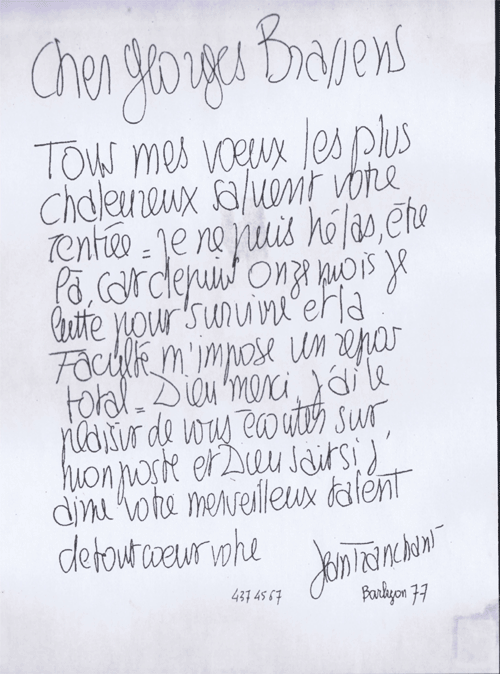 Cher Georges Brassens
Tous mes vœux les plus
chaleureux saluent votre
rentrée = je ne puis hélas, être
là, car depuis onze mois je
lutte pour survivre et la
Faculté m'impose un repos
total = Dieu merci, j'ai le
plaisir de vous écouter sur
mon poste et Dieu sait si j'
aime votre merveilleux talent
de tout cœur votre
Jean Tranchant
437 45 67
Barbizon 77